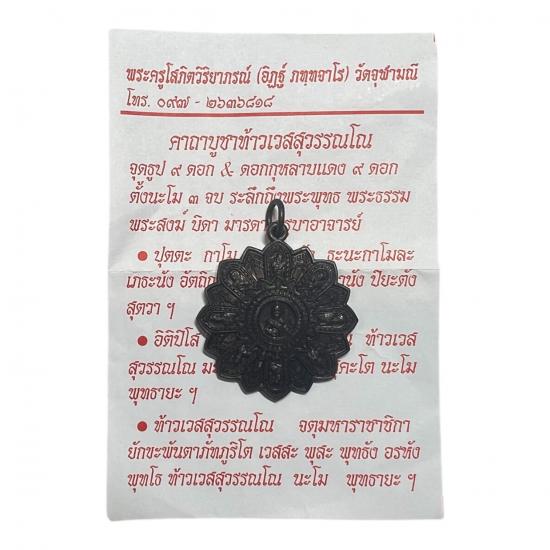 พระครูโสภิตวิริยาภรณ์ (อิฏฐ์ ภทฺทจาโร) วัดจุฬามณี
โทร. ๐๙๗ - ๒๖๓๖๘๑๘
คาถาบูชาท้าวเวสสุวรรณโณ
จุดธูป ๙ ดอก & ดอกกุหลาบแดง ๙ ดอก
ตั้งนะโม ๓ จบ ระลึกถึงพระพุทธ พระธรรม
พระสงฆ์ บิดา มารดา ครูบาอาจารย์
● ปุตตะ กาโม ธะนะกาโมละ
เภธะนัง อัตถิ ปิยะตัง
สุตวา ฯ
● อิติปิโส ท้าวเวส
สุวรรณโณ คะโต นะโม
พุทธายะ ฯ
● ท้าวเวสสุวรรณโณ จตุมหาราชาชิกา
ยักขะพันตาภัทภูริโต เวสสะ พุสะ พุทธัง อรหัง
พุทโธ ท้าวเวสสุวรรณโณ นะโม พุทธายะ ฯ